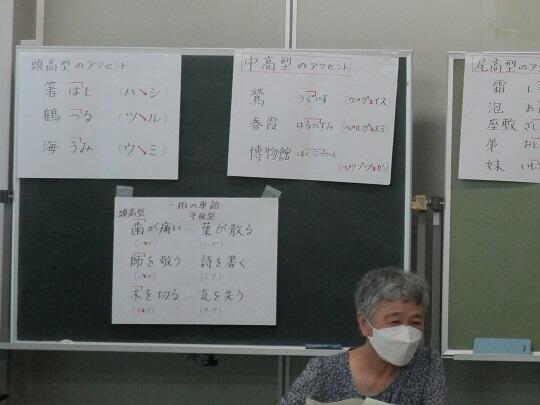 頭高型のアクセント
箸 はし (ハシ)
鶴 つる (ツル)
海 うみ (ウミ)
中高型のアクセント
鶯 うぐいす (ウグイス)
春霞 はるがすみ (ハルガスミ)
博物館 はくぶつかん (ハクブツカン)
一拍の単語
頭高型 平板型
歯が痛い 葉が散る
師を敬う 詩を書く
木を切る 気を失う
尾高型のア
霜
泡
座敷
弟 おと
妹 いも